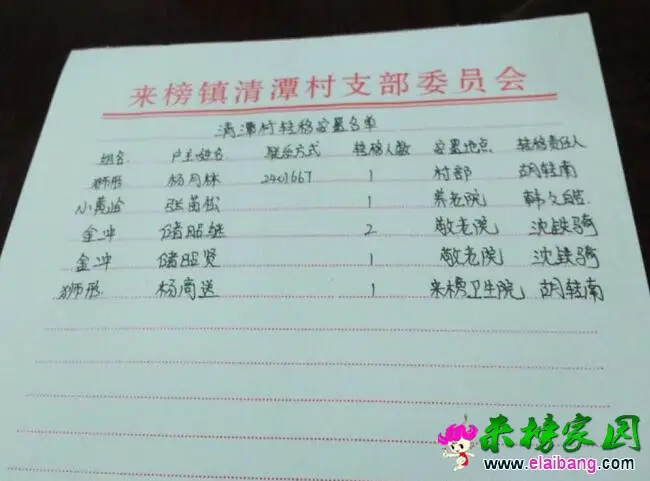 来榜镇清潭村支部委员会
清潭村转移安置名单
组名 户主姓名 联系方式 转移人数 安置地点 转移责任人
狮形 杨月林 2401667 1 村部 胡转南
小黄岭 张苗松 1 养老院 韩
金冲 储昭继 2 敬老院 沈铁骑
金冲 储昭贤 1 敬老院 沈铁骑
狮形 杨商送 1 来榜卫生院 胡转南
来榜家园
www.elaibang.com